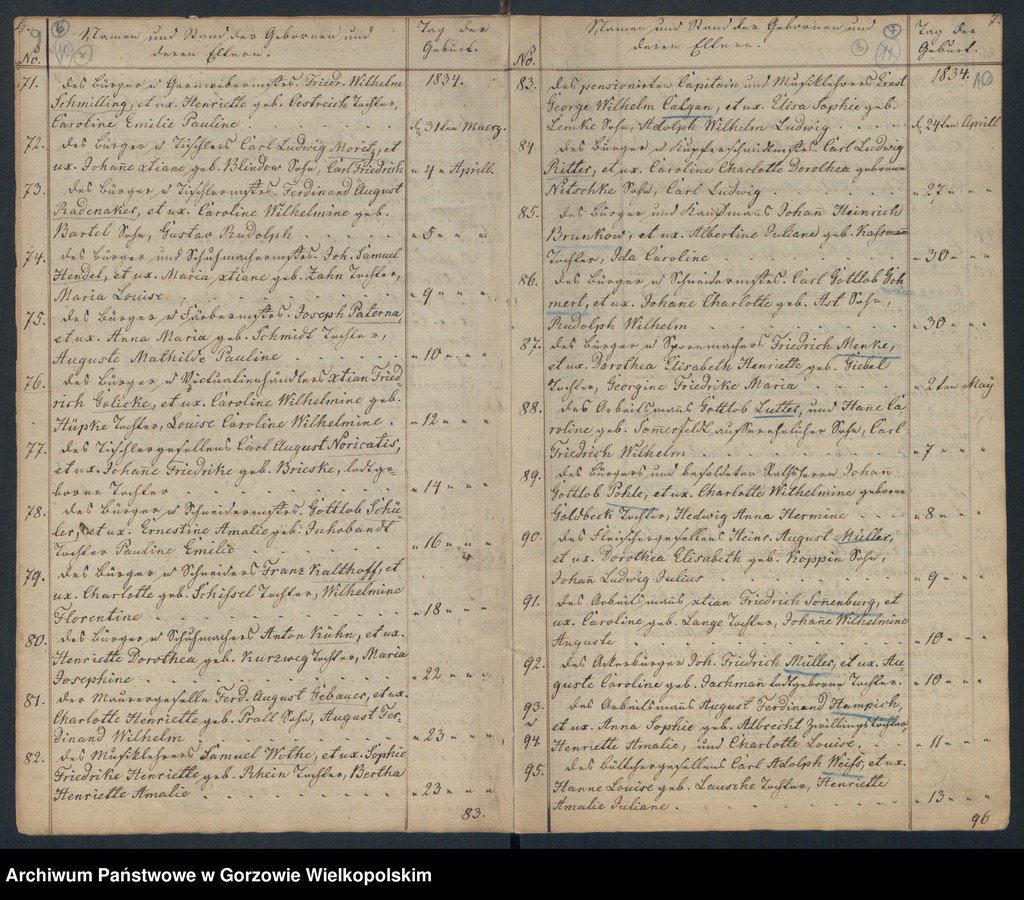 6.
No.
Namen und Stand der Gebornen und
deren Eltern.
Tag der
Geburt.
1834.
71. des Bürger u Garnwebermstrs. Friedr. Wilhelm
Schmilling, et ux. Henriette geb. Oestreich Tochter,
Caroline Emilie Pauline . . . . d. 31ten Maerz.
72. des Bürger u Tischlers Carl Ludwig Moritz, et
ux. Johañe xtiane geb. Blindow Sohn, Carl Friedrich " 4 " Aprill.
73. des Bürger u Tischlermstrs. Ferdinand August
Radenaker, et ux. Caroline Wilhelmine geb.
Bartel Sohn, Gustav Rudolph . . . . " 5 " " "
74. des Bürger und Schuhmachermstrs. Joh. Samuel
Hendel, et ux. Maria xtiane geb. Zahn Tochter,
Maria Louise . . . . " 9 " " "
75. des Bürger u Färbermstrs. Joseph Paterna,
et ux. Anna Maria geb. Schmidt Tochter,
Auguste Mathilde Pauline . . . . " 10 " " "
76. des Bürger u Victualienhändlers xtian Fried
rich Golicke, et ux. Caroline Wilhelmine geb.
Hüpke Tochter, Louise Caroline Wilhelmine . " 12 " " "
77. des Tischlergesellens Carl August Noricatis,
et ux. Johane Friedrike geb. Brieske, todtge-
borne Tochter . . . . " 14 " " "
78. des Bürger u Schneidermstrs. Gottlob Schü
ler, et ux. Ernestine Amalie geb. Fuhrbandt
Tochter Pauline Emilie . . . . " 16 " " "
79. des Bürger u Schneiders Franz Kalthoff, et
ux. Charlotte geb. Schissel Tochter, Wilhelmine
Florentine . . . . " 18 " " "
80. des Bürger u Schuhmachers Anton Kühn, et ux.
Henriette Dorothea geb. Kurzweg Tochter, Maria
Josephine . . . . " 22 " " "
81. der Maurergeselle Ferd. August Gebauer, et ux.
Charlotte Henriette geb. Prall Sohn, August Fer
dinand Wilhelm . . . . " 23 " " "
82. des Musiklehrers Samuel Wothe, et ux. Sophie
Friedrike Henriette geb. Rhein Tochter, Bertha
Henriette Amalie . . . . " 23 " " "
83.
7.
No.
Namen und Stand der Gebornen und
deren Eltern.
Tag der
Geburt.
1834.
83. des pensionirten Capitain und Musiklehrers Ernst
George Wilhelm Calgan, et ux. Elisa Sophie geb.
Lemke Sohn, Adolph Wilhelm Ludwig . . . . d. 24ten Aprill
84 des Bürger u Kupferschmidtmstrs. Carl Ludwig
Ritter, et ux. Caroline Charlotte Dorothea geborne
Nitschke Sohn, Carl Ludwig . . . . " 27 " " "
85. des Bürger und Kaufmañs Johan Heinrich
Brunkow, et ux. Albertine Juliane geb. Kassman
Tochter, Ida Caroline . . . . " 30 " " "
86. des Bürger u Schneidermstrs. Carl Gottlob Goh
mert, et ux. Johane Charlotte geb. Ast Sohn,
Rudolph Wilhelm . . . . " 30 " " "
87. des Bürger u Sporenmachers Friedrich Menke,
et ux. Dorothea Elisabeth Henriette geb. Giebel
Tochter, Georgine Friedrike Maria . . . . " 2ten May
88. des Arbeitsmañs Gottlob Lutter, und Hañe Ca
roline geb. Somerfeldt aussereheliger Sohn, Carl
Friedrich Wilhelm . . . . " 7 " " "
89. des Bürgers und besoldeten Rathsherrn Johan
Gottlob Pohle, et ux. Charlotte Wilhelmine geborne
Goldbeck Tochter, Hedwig Anna Hermine . . " 8 " " "
90. des Fleischergesellens Heinr. August Müller,
et ux. Dorothea Elisabeth geb. Koppin Sohn,
Johañ Ludwig Julius . . . . " 9 " " "
91. des Arbeitsmañs xtian Friedrich Soñenburg, et
ux. Caroline geb. Lange Tochter, Johañe Wilhelmine
Auguste . . . . " 10 " " "
92. des Ackerbürger Joh. Friedrich Müller, et ux. Au-
guste Caroline geb. Jachman todtgeborne Tochter. " 10 " " "
93. des Arbeitsmañs August Ferdinand Hampich,
u et ux. Anna Sophie geb. Albrecht Zwillingstöchter,
94. Henriette Amalie, und Charlotte Louise. . . " 11 " " "
95. des Böttchergesellens Carl Adolph Weiss, et ux.
Hanne Louise geb. Lausche Tochter, Henriette
Amalie Juliane . . . . " 13 " " "
96
Archiwum Państwowe w Gorzowie Wielkopolskim